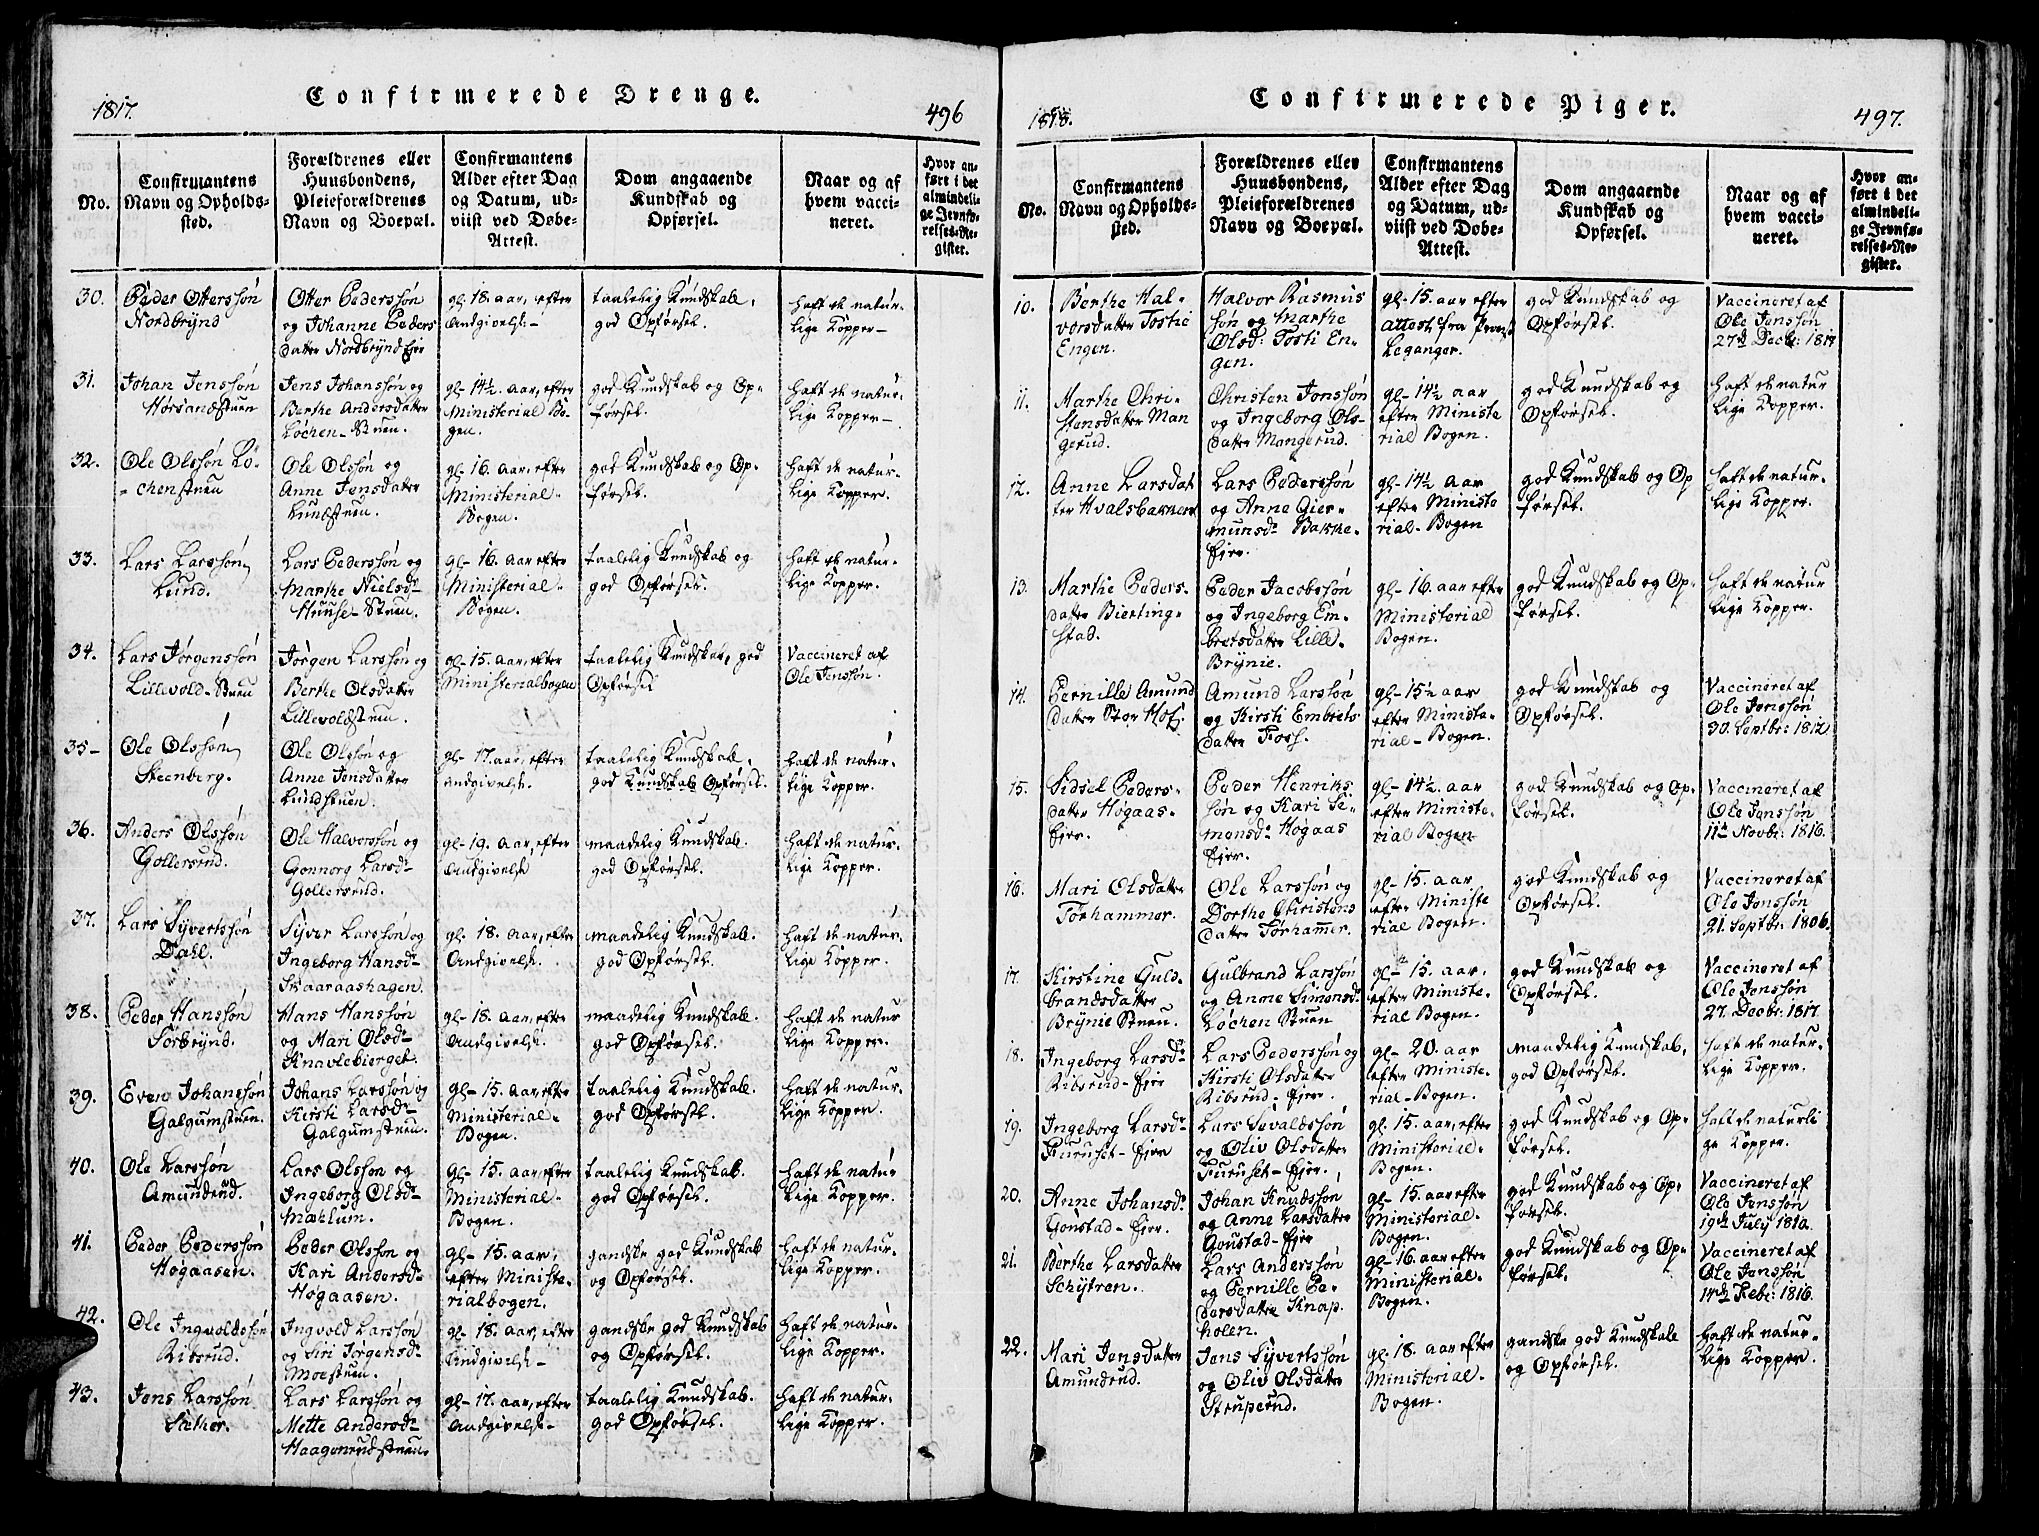 1817.
Confirmerede Drenge.
496
No.
Confirmantens
Navn og Opholds-
sted.
Forældrenes eller
Huusbondens,
Pleieforældrenes
Navn og Boepæl.
Confirmantens
Alder efter Dag
og Datum, ud-
viist ved Døbe-
Attest.
Dom angaaende
Kundskab og
Opførsel.
Naar og af
hvem vacci-
neret.
Hvor an-
ført i det
almindeli-
ge Jevnfø-
relses-Re-
gister.
30.
Peder Otterssøn
Nordbrÿnd
Otter Pederssøn
og Johanne Peders
datter Nordbrÿnd Eier
gl- 18. aar, efter
Andgivelse-
taalelig Kundskab,
god Opførsel.
Haft de natur-
lige Kopper-
31.
Johan Jenssøn
Hørsandstuen
Jens Johanssøn og
Berthe Andersdatter
Løchen-Stuen.
gl- 14½ aar, efter
Ministerial Bo-
gen.
god Kundskab og Op-
førsel.
Haft de natur-
lige Kopper-
32.
Ole Olssøn Lö-
chenstuen
Ole Olssøn og
Anne Jensdatter
Lundstuen.
gl- 16. aar, efter
Ministerial-
Bogen.
god Kundskab og Op-
førsel.
Haft de natur-
lige Kopper.
33.
Lars Larssøn
Lund.
Lars Pederssøn og
Marthe Nielsd-
Huuse-Stuen.
gl- 16. aar efter
Ministerial-
Bogen.
taalelig Kundskab og
god Opførsel.
Haft de natur-
lige Kopper.
34.
Lars Jørgenssøn
Lillevold-Stuen
Jørgen Larssøn og
Berthe Olsdatter
Lillevoldstuen.
gl- 15. aar, efter
Ministerialbogen
taalelig Kundskab, god
Opførsel
Vaccineret af
Ole Jenssøn.
35-
Ole Olssøn
Steenberg.
Ole Olssøn og
Anne Jensdatter
Lundstuen.
gl- 17. aar, efter
Andgivelse.
taalelig Kundskab,
god Kundskab Opførsel.
Haft de natur-
lige Kopper.
36.
Anders Olssøn
Gollerud.
Ole Halvorssøn og
Gonnorg Larsd-
Gollersrud.
gl- 19. aar, efter
Andgivelse
maadelig Kundskab.
god Opførsel.
Haft de natur-
lige Kopper.
37.
Lars Sÿvertssøn
Dahl.
Sÿver Larssøn og
Ingeborg Hansd-
Skaaraashagen.
gl. 18. aar, efter
Andgivelse.
maadelig Kundskab.
god Opførsel.
Haft de natur-
lige Kopper.
38.
Peder Hanssøn
Sörbrÿnd.
Hans Hanssøn
og Mari Olsd-
Knavlebierget.
gl- 18. aar, efter
Andgivelse.
maadelig Kundskab.
god Opførsel.
Haft de natur
lige Kopper.
39.
Even Johanssøn
Galgumstuen.
Johans Larssøn og
Kirsti Larsd-
Galgumstuen.
gl- 15. aar, efter
Ministerial-
Bogen.
taalelig Kundskab.
god Opførsel.
Haft de natur-
lige Kopper.
40.
Ole Larssøn
Amundrud.
Lars Olssøn og
Ingeborg Olsd-
Mæhlum.
gl- 15. aar, efter
Ministerial-
Bogen.
taalelig Kundskab.
god Opførsel.
Haft de natur
lige Kopper.
41.
Peder Pederssøn
Høgaasen.
Peder Olssøn og
Kari Andersd-
Høgaasen.
gl- 15. aar,
efter Ministe-
rialbogen.
gandske god Kundskab
og Opførsel.
Haft de natur-
lige Kopper.
42.
Ole Ingvoldssøn
Ribsrud.
Ingvold Larssøn
og Siri Jørgensd-
Moestuen.
gl- 18. aar, efter
Andgivelse-
gandske god Kundskab
og Opførsel.
Haft de natur-
lige Kopper.
43.
Jens Larssøn
Sæther.
Lars Larssøn og
Mette Andersd-
Haagenrudstuen.
gl- 17. aar, efter
Andgivelse-
taalelig Kundskab.
god Opførsel.
Haft de natur-
lige Kopper.
1818.
Confirmerede Piger.
497.
No.
Confirmantens
Navn og Opholds-
sted.
Forældrenes eller
Huusbondens,
Pleieforældrenes
Navn og Boepæl.
Confirmantens
Alder efter Dag
og Datum, ud-
viist ved Døbe-
Attest.
Dom angaaende
Kundskab og
Opførsel.
Naar og af
hvem vacci-
neret.
Hvor an-
ført i det
almindeli-
ge Jevnfø-
relses-Re-
gister.
10.
Berthe Hal-
vorsdatter Tostie
Engen.
Halvor Rasmus
søn og Marthe
Olsd: Tosti En-
gen.
gl- 15. aar efter
attest fra Provst
Leganger.
god Kundskab og
Opførsel.
Vaccineret af
Ole Jenssøn
27de Decbr: 1817
11.
Marthe Chri-
stensdatter Man
gerud.
Christen Jonssøn
og Ingeborg Ols-
datter Mangerud.
gl- 14½ aar
efter Ministe
rial Bogen.
god Kundskab og
Opførsel.
Haft de natur
lige Kopper.
12.
Anne Larsdat
ter Hvalsbakken
Lars Pederssøn
og Anne Gier-
mundsd- Bakke-
Eier.
gl- 14½ aar
efter Ministe
rial-Bogen
god Kundskab og Op
førsel.
Haft de natur-
lige Kopper.
13.
Marthe Peders-
datter Bierting-
stad.
Peder Jacobssøn
og Ingeborg Em-
bretsdatter Lille-
Brÿnie.
gl- 16. aar efter
Ministerial
Bogen.
god Kundskab og Op-
førsel.
Haft de natur
lige Kopper.
14.
Pernille Amund
datter Stor Hof.
Amund Larssøn
og Kirsti Embrets
datter Foss.
gl- 15½ aar
efter Ministe-
rial-Bogen.
god Kundskab og
Opførsel.
Vaccineret af
Ole Jenssøn
30. Septbr: 1812
15.
Sidsel Peders-
datter Høgaas-
Eier.
Peder Henriks
søn og Kari Si-
mensd- Høgaas
Eier.
gl- 14½ aar
efter Ministe-
rial Bogen
god Kundskab og Op-
førsel.
Vaccineret af
Ole Jenssøn
11te Novbr: 1816.
16.
Mari Olsdatter
Torhammer.
Ole Larssøn og
Dorthe Christens
datter Torham̅er.
gl- 15. aar
efter Ministe
rial Bogen.
god Kundskab og
Opførsel.
Vaccineret af
Ole Jenssøn
21. Septbr: 1806.
17.
Kirstine Guld-
brandsdatter
Brÿnie Stuen.
Gulbrand Larssøn
og Anne Simensd-
Løchen Stuen
gl- 15. aar.
efter Ministe-
rial Bogen.
god Kundskab og
Opførsel.
Vaccineret af
Ole Jenssøn
27. Decbr: 1817.
18.
Ingeborg Larsd-
Ribsrud-Eier
Lars Pederssøn og
Kirsti Olsdatter
Ribsrud-Eier.
gl- 20. aar
efter Ministe-
rial-Bogen.
maadelig Kundskab,
god Opførsel.
Haft de natur-
lige Kopper.
19.
Ingeborg Larsd-
Furuset-Eier
Lars Sevaldssøn
og Oliv Olsdatter
Furuset-Eier.
gl. 15. aar, efter
Ministerial-
Bogen.
god Kundskab og Op-
førsel.
Haft de naturli
ge Kopper.
20.
Anne Johansd-
Gonstad-Eier.
Johan Knudssøn
og Anne Larsdatter
Gonstad-Eier
gl- 15. aar efter
Ministerial-
Bogen.
god Kundskab og Op-
førsel.
Vaccineret af
Ole Jenssøn
19de Julÿ 1810.
21.
Berthe Larsdatter
Schÿtren.
Lars Anderssøn
og Pernille Pe-
dersdatter Knap-
holen.
gl- 16. aar efter
Ministerial-
Bogen.
god Kundskab og Op-
førsel.
Vaccineret af
Ole Jenssøn
14de Febr: 1816.
22.
Mari Jensdatter
Amundrud.
Jens Sÿvertssøn
og Oliv Olsdatter
Struperud.
gl. 18. aar efter
Ministerial-
Bogen.
gandske god Kundskab
og Opførsel.
Haft de natur-
lige Kopper.